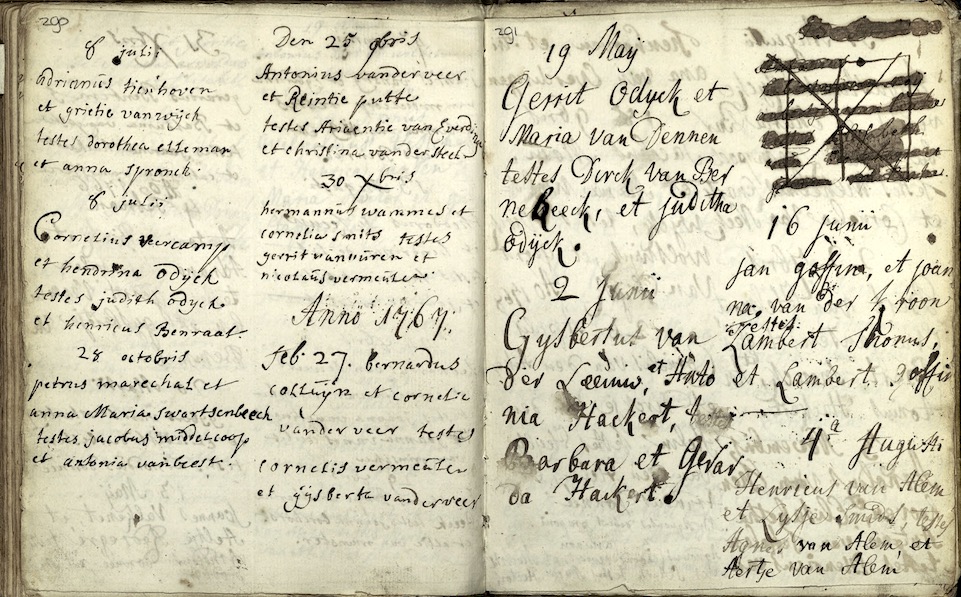 290
8 julii
adrianus tienhoven
et grietie van wijck
testes dorothea elleman
et anna spronck.
8 julii
Cornelius vercamp
et hendrina Odijck
testes judith Odyck
et henricus Benraat.
28 octobris
petrus marechal et
anna Maria swartsenbeech
testes jacobus middelcoop
et antonia vanbeest.
Den 25 9bris
Antonius vanderveer
et Reintie putte
testes Ariaentie van Everdinge
et christina vandersteeh
30 Xbris
hermannus wammes et
cornelia smits testes
gerrit vanvuren et
nicolaus vermeulen
Anno 1767.
feb. 27. bernardus
colluijn et cornelie
vanderveer testes
cornelis vermeulen
et gijsberta vanderveer
291
19 Maij
Gerrit Odyck et
Maria van Dennen
testes Dirck van Ber
nebeeck, et juditha
Odyck.
2 Junii
Gysbertus van
Der Leeuw, et Anto
nia Hackert, testes
Barbara et Gerar
da Hackert.
16 junii
jan goffin, et joan
na van der Kroon
testes
Lambert Thonus,
et Lambert goffin
4a Augusti
Henricus van Alem
et Lysje Smids, testes
Agnes van Alem, et
Aertje van Alem